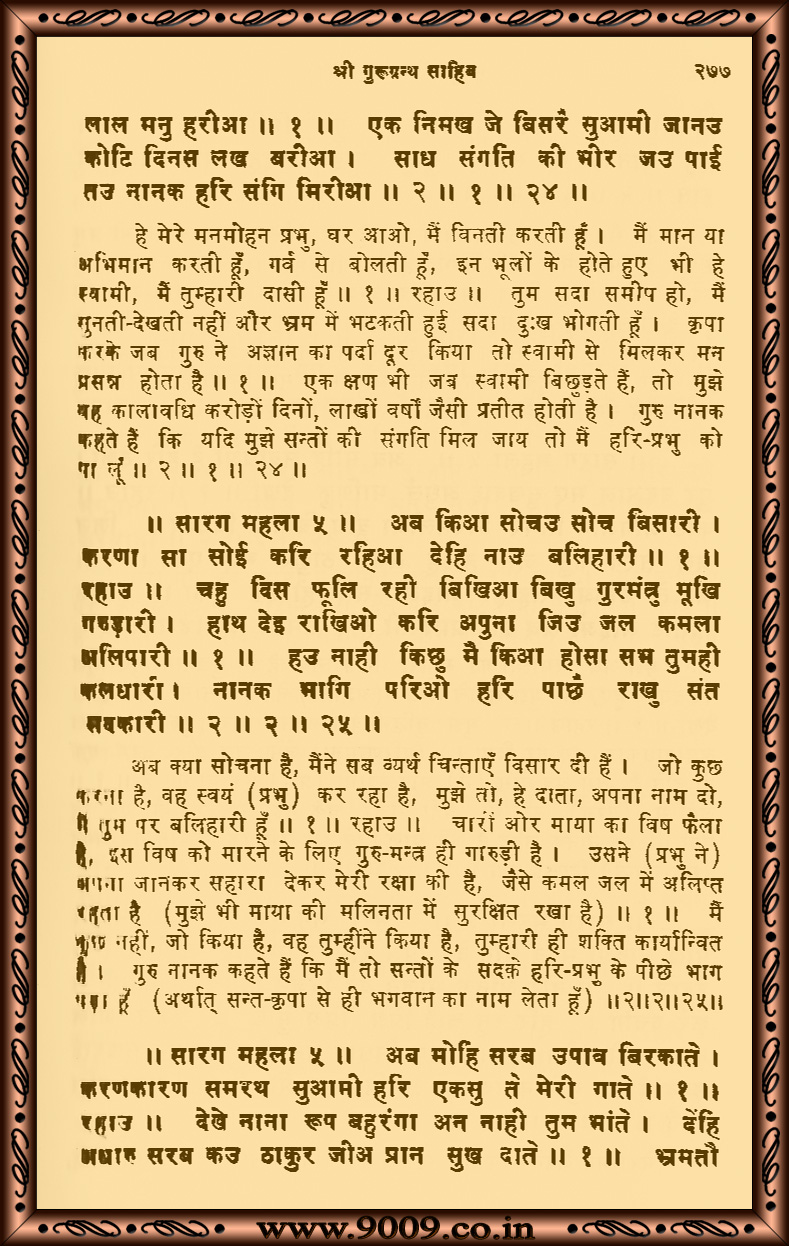 श्री गुरूग्रन्थ साहिब २७७
लाल मनु हरीआ ॥ १ ॥ एक निमख जे बिसरै सुआमी जानउ
कोटि दिनस लख बरीआ । साध संगति की भीर जउ पाई
तउ नानक हरि संगि मिरीआ ॥ २ ॥ १ ॥ २४ ॥
हे मेरे मनमोहन प्रभु, घर आओ, मैं विनती करती हूँ । मैं मान या
अभिमान करती हूँ, गर्व से बोलती हूँ, इन भूलों के होते हुए भी हे
स्वामी, मैं तुम्हारी दासी हूँ ॥ १ ॥ रहाउ ॥ तुम सदा समीप हो, मैं
सुनती-देखती नहीं और भ्रम में भटकती हुई सदा दुःख भोगती हूँ । कृपा
करके जब गुरु ने अज्ञान का पर्दा दूर किया तो स्वामी से मिलकर मन
प्रसन्न होता है ॥ १ ॥ एक क्षण भी जब स्वामी बिछुड़ते हैं, तो मुझे
वह कालावधि करोड़ों दिनों, लाखों वर्षों जैसी प्रतीत होती है । गुरु नानक
कहते हैं कि यदि मुझे सन्तों की संगति मिल जाय तो मैं हरि-प्रभु को
पा लूँ ॥ २ ॥ १ ॥ २४ ॥
॥ सारग महला ५ ॥ अब किआ सोचउ सोच बिसारी ।
करणा सा सोई करि रहिआ देहि नाउ बलिहारी ॥ १ ॥
रहाउ ॥ चहु दिस फूलि रही बिखिआ बिखु गुरमंत्रु मूखि
गरुड़ारी । हाथ देइ राखिओ करि अपुना जिउ जल कमला
अलिपारी ॥ १ ॥ हउ नाही किछु मै किआ होसा सभ तुमही
कलधारी । नानक भागि परिओ हरि पाछै राखु संत
सदकारी ॥ २ ॥ २ ॥ २५ ॥
अब क्या सोचना है, मैंने सब व्यर्थ चिन्ताएँ विसार दी हैं । जो कुछ
करना है, वह स्वयं (प्रभु) कर रहा है, मुझे तो, हे दाता, अपना नाम दो,
मैं तुम पर बलिहारी हूँ ॥ १ ॥ रहाउ ॥ चारों ओर माया का विष फैला
है, इस विष को मारने के लिए गुरु-मन्त्र ही गारुड़ी है । उसने (प्रभु ने)
अपना जानकर सहारा देकर मेरी रक्षा की है, जैसे कमल जल में अलिप्त
रहता है (मुझे भी माया की मलिनता में सुरक्षित रखा है) ॥ १ ॥ मैं
कुछ नहीं, जो किया है, वह तुम्हींने किया है, तुम्हारी ही शक्ति कार्यान्वित
है । गुरु नानक कहते हैं कि मैं तो सन्तों के सदक़े हरि-प्रभु के पीछे भाग
पड़ा हूँ (अर्थात् सन्त-कृपा से ही भगवान का नाम लेता हूँ) ॥२॥२॥२५॥
॥ सारग महला ५ ॥ अब मोहि सरब उपाव बिरकाते ।
करणकारण समरथ सुआमी हरि एकसु ते मेरी गाते ॥ १ ॥
रहाउ ॥ देखे नाना रूप बहुरंगा अन नाही तुम भांते । देंहि
अधारु सरब कउ ठाकुर जीअ प्रान सुख दाते ॥ १ ॥ भ्रमतौ
www.9009.co.in